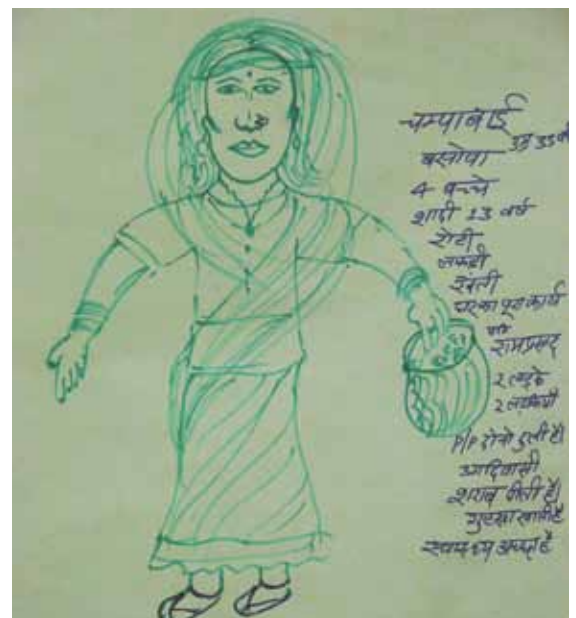 चम्पाबाई
उम्र 35 वर्ष
बसोपा
4 बच्चे
शादी 13 वर्ष
रोटी
लकड़ी
खेती
घर का पूरा कार्य
पति
रामप्रसाद
2 लड़के
2 लड़कियाँ
आदिवासी
शराब पीती है।
गुटखा खाती है